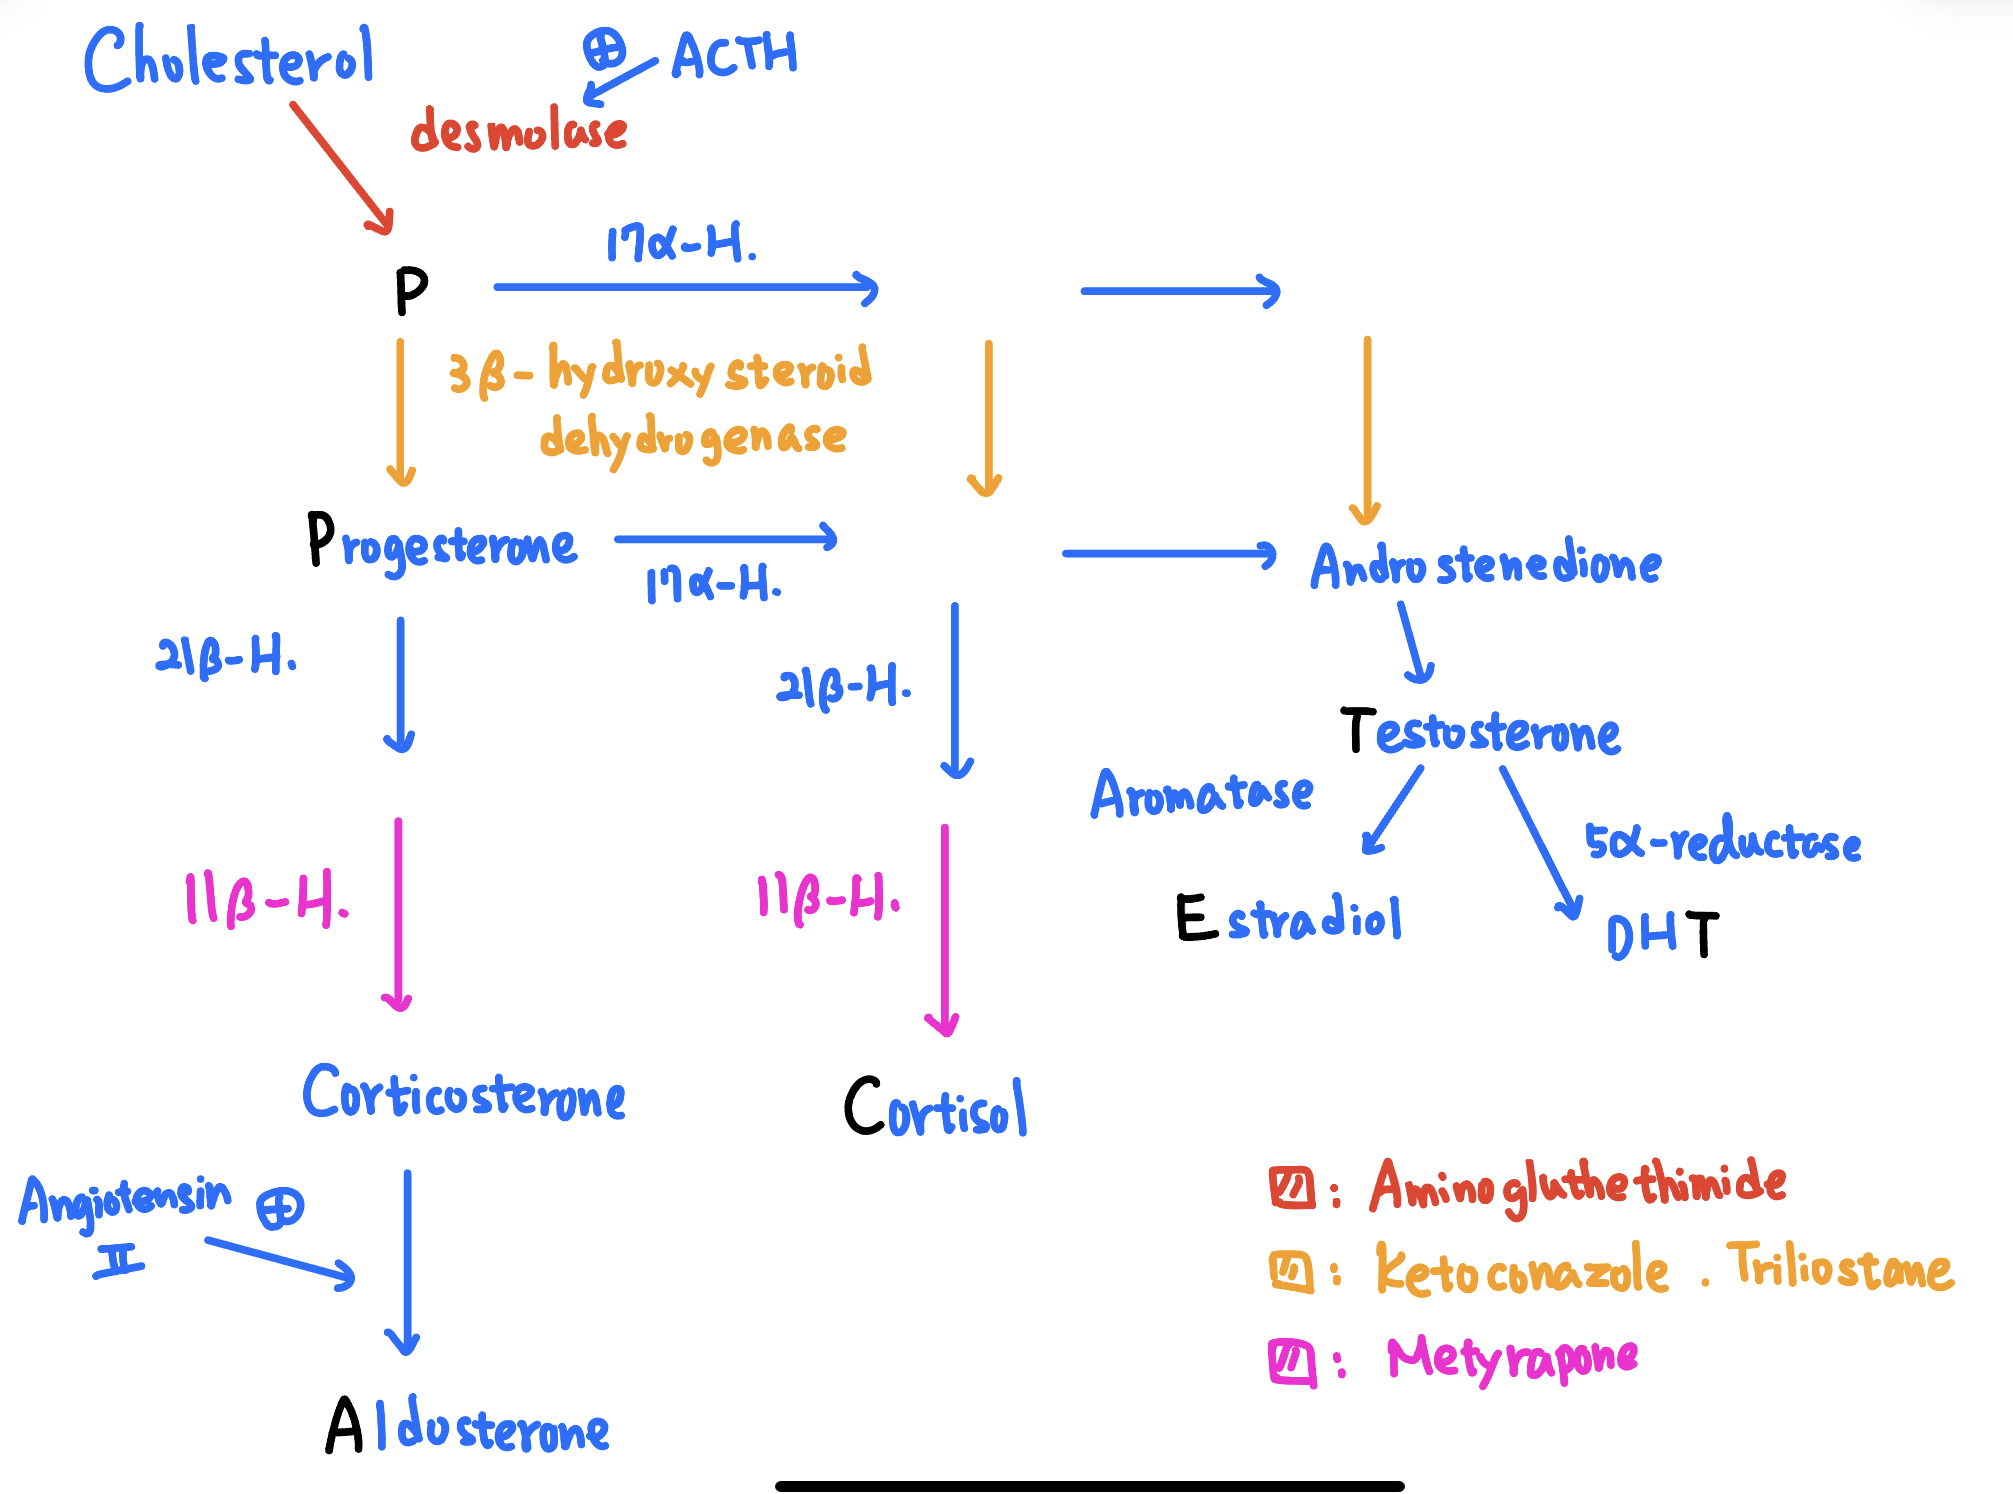 Cholesterol
⊕ ACTH
desmolase
P
17α-H.
3β-hydroxy steroid
dehydrogenase
Progesterone
17α-H.
Androstenedione
21β-H.
21β-H.
Testosterone
Aromatase
5α-reductase
11β-H.
11β-H.
Estradiol
DHT
Corticosterone
Cortisol
Angiotensin ⊕
II
Aldosterone
: Aminogluthethimide
: Ketoconazole . Triliostane
: Metyrapone